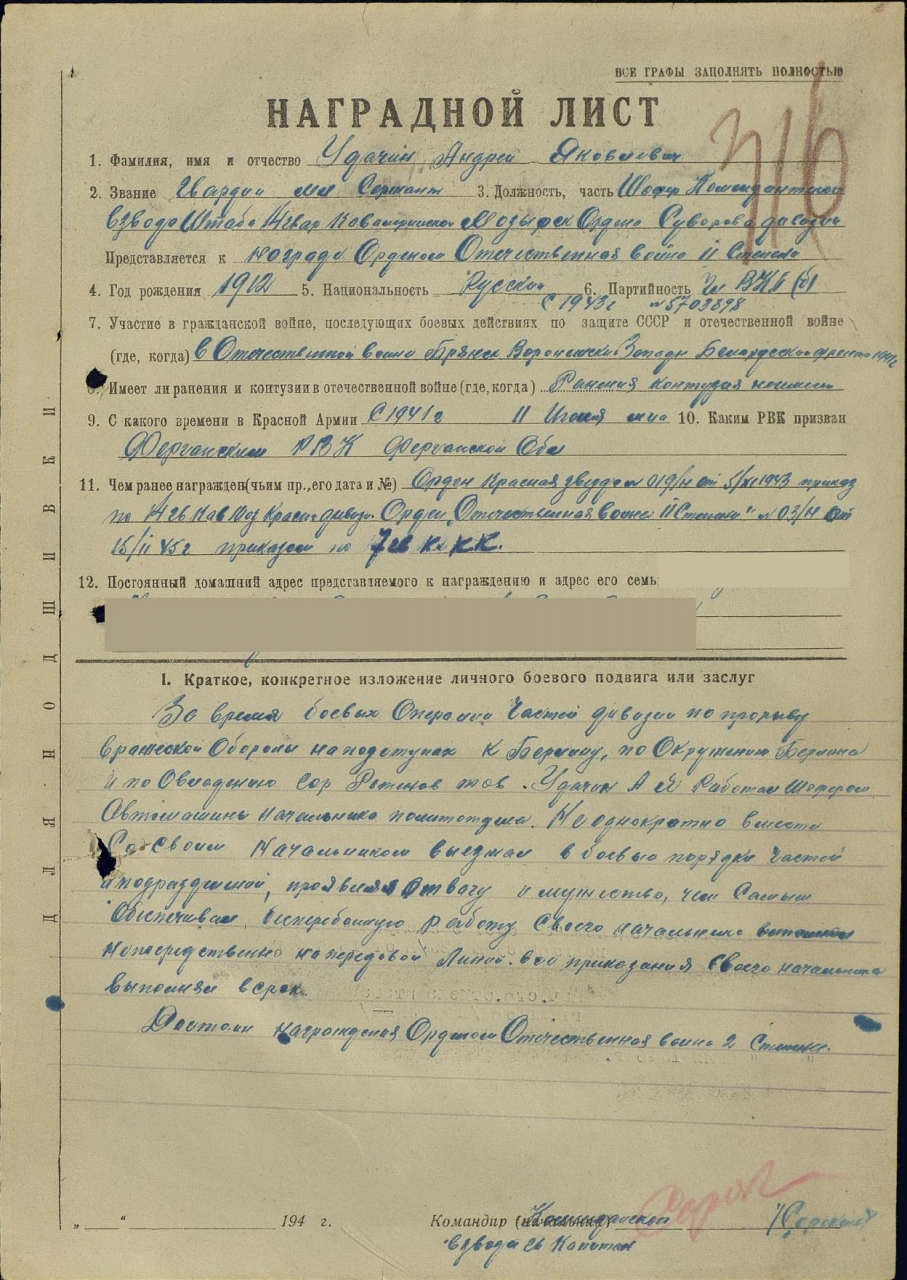 ВСЕ ГРАФЫ ЗАПОЛНЯТЬ ПОЛНОСТЬЮ
НАГРАДНОЙ ЛИСТ
316
1. Фамилия, имя и отчество Удачин Андрей Яковлевич
2. Звание Гвардии мл Сержант 3. Должность, часть Шофер Комендантского
взвода Штаба 14 гвар Кавалерийской Мозырск Ордена Суворова дивизии
Представляется к награде Орденом Отечественная война II Степени
4. Год рождения 1912 5. Национальность Русский 6. Партийность Чл ВКП(б)
С 1943г №5703898
7. Участие в гражданской войне, последующих боевых действиях по защите СССР и отечественной войне
(где, когда) в Отечественной войне Брянск Воронежский Западн Белорусский фронта
8. Имеет ли ранения и контузии в отечественной войне (где, когда) Ранения контузия
9. С какого времени в Красной Армии С 1941г 11 10. Каким РВК призван
Ферганским РВК Ферганской Обл
11. Чем ранее награжден (чьим пр., его дата и №) Орден Красная звезда № 019/н от 5/XI 1943 приказ
по 14 гв Кав Моз Красн дивиз. Орден „Отечественная война II Степени" № 03/н от
15/II 45г приказом по 7 гв К ККК.
12. Постоянный домашний адрес представляемого к награждению и адрес его семь
I. Краткое, конкретное изложение личного боевого подвига или заслуг
За время боевых Операции Частей дивизии по прорыву
вражеской Обороны на подступах к Берлину, по Окружению Берлина
и по Овладению гор Ратенов тов. Удачин А Я Работал Шофером
Автомашины Начальника политотдела. Неоднократно вместе
Со своим Начальником выезжал в боевые порядки частей
и подразделений, проявляя Отвагу и мужество, чем Самым
Обеспечивал бесперебойную работу Своего начальника
непосредственно на передовой Линии. все приказания Своего начальника
выполнял в срок
Достоин награждения Орденом Отечественная война 2 Степени.
„ “ 194 г. Командир (начальник) Комендантской
взвода гв Капитан
ДЛЯ ПОДШИВКИ